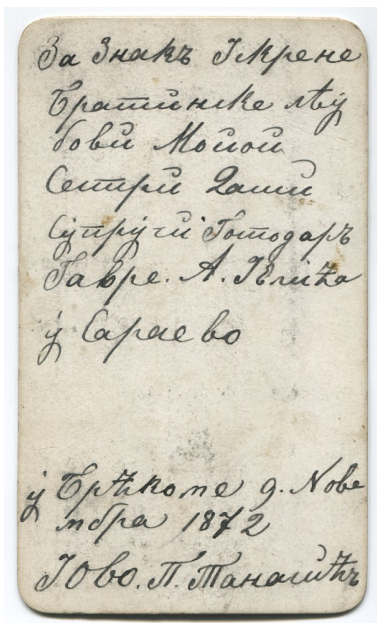 За Знакъ Јскрене
Братинске лѣу
бови Мойой
Сестри Даши
супруги Господаръ
Гавре. А. Јелића
у Сараево
у Брѣкоме д. Нове
мбра 1872
Јово. П. Танасићъ